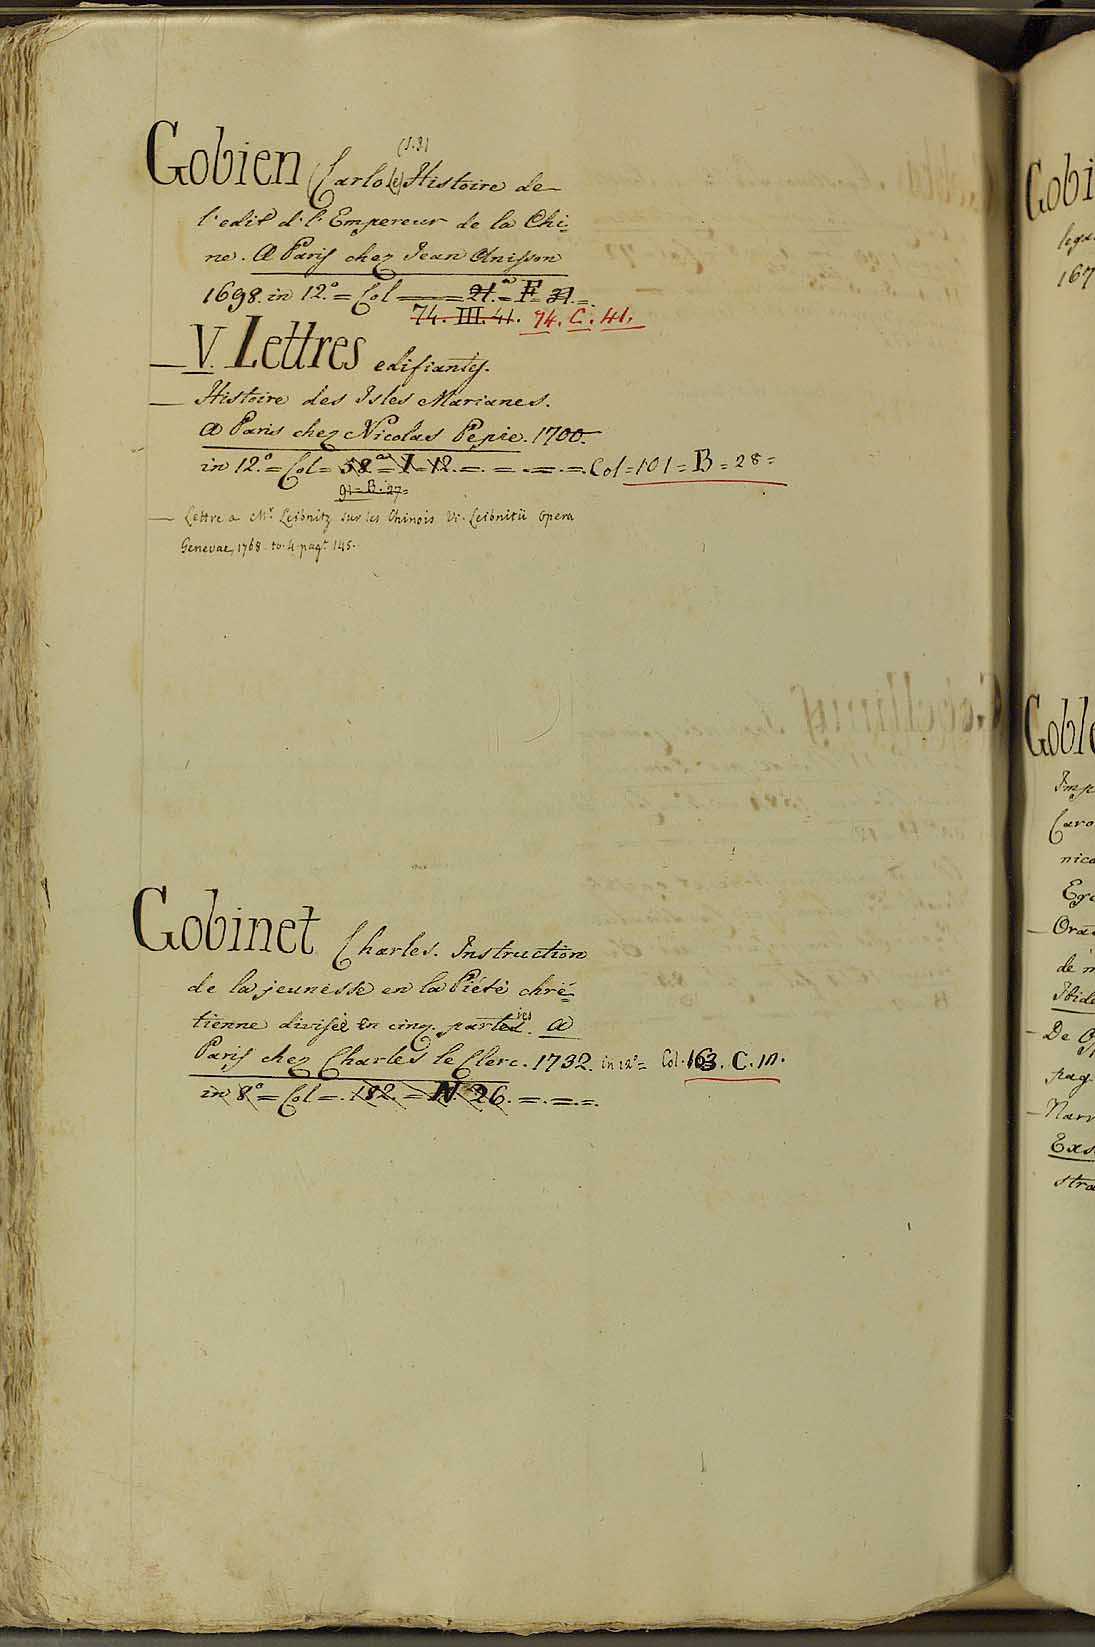 (S.J)
Gobien (Carlo le) Histoire de
l'edit d'l'Empereur de la Chi=
ne. A Paris chez Jean Anisson
1698. in 12.° = Col 21.a = F = 31. =
74. III. 41. 74. C. 41.
— V. Lettres edifiantes.
— Histoire des Isles Marianes.
A Paris chez Nicolas Pepie. 1700.
in 12.° = Col = 58 a = I = 12. = . = . = . = . Col = 101 = B = 28 =
91 = B. 27 =
— Lettre a Mr. Leibnitz sur les Chinois Vi. Leibnitii Opera
Genevae, 1768. to. 4. pag. 145.
Gobinet Charles. Instruction
de la jeunesse en la Piété chré=
tienne divisée en cinq parties. A
Paris chez Charles le Clerc. 1732. in 12° = Col. 163. C. 10.
in 8° = Col = . 182. = N 26. = . = . = .
Gobi
lega
167
Goble
Imp
Caro
nica
Ora
de m
Ibide
De
pag
Narr
Exs
stra